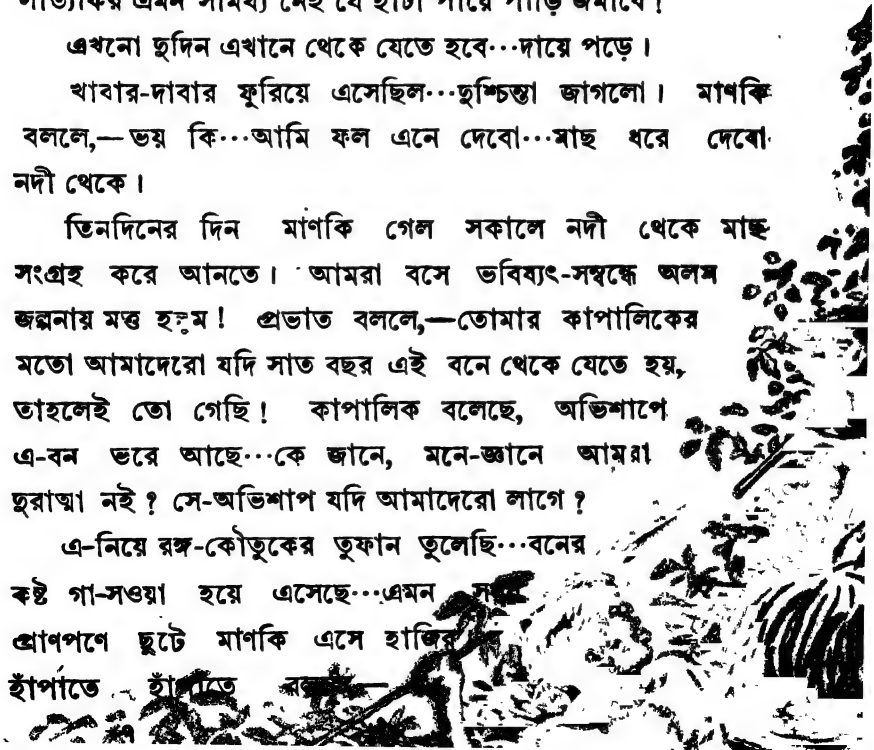 সাত্যকির এমন সামর্থ্য নেই যে হাঁটা পায়ে পাড়ি জমাবে!
এখনো দুদিন এখানে থেকে যেতে হবে···দায়ে পড়ে।
খাবার-দাবার ফুরিয়ে এসেছিল···দুশ্চিন্তা জাগলো। মাণকি
বললে,—ভয় কি···আমি ফল এনে দেবো···মাছ ধরে দেবো
নদী থেকে।
তিনদিনের দিন মাণকি গেল সকালে নদী থেকে মাছ
সংগ্রহ করে আনতে। আমরা বসে ভবিষ্যৎ-সম্বন্ধে অলস
জল্পনায় মত্ত হলুম! প্রভাত বললে,—তোমার কাপালিকের
মতো আমাদেরো যদি সাত বছর এই বনে থেকে যেতে হয়,
তাহলেই তো গেছি! কাপালিক বলেছে, অভিশাপে
এ-বন ভরে আছে···কে জানে, মনে-জ্ঞানে আমরা
দুরাত্মা নই? সে-অভিশাপ যদি আমাদেরো লাগে?
এ-নিয়ে রঙ্গ-কৌতুকের তুফান তুলেছি···বনের
কষ্ট গা-সওয়া হয়ে এসেছে···এমন সময়
প্রাণপণে ছুটে মাণকি এসে হাজির
হাঁপাতে হাঁপাতে